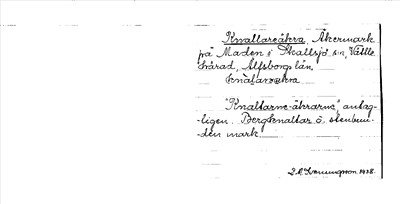 Knallareåkra, Åkermark
på Maden i Skallsjö sn, Vättle
härad, Älfsborgs län.
"Knallarne-åkrarne", antag-
ligen. Bergknallar o. stenbun-
den mark.
1938.